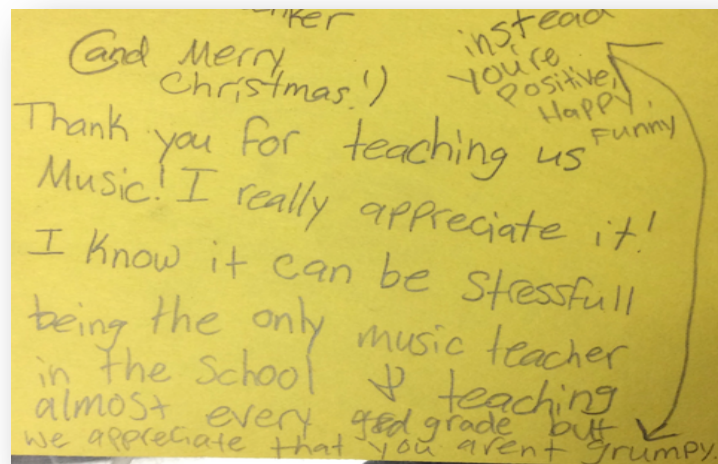 (and Merry
Christmas!)
Thank you for teaching us
Music! I really appreciate it!
I know it can be stressfull
being the only music teacher
in the School & teaching
almost every grade but
we appreciate that you arent grumpy.
instead
you're
positive,
Happy,
Funny